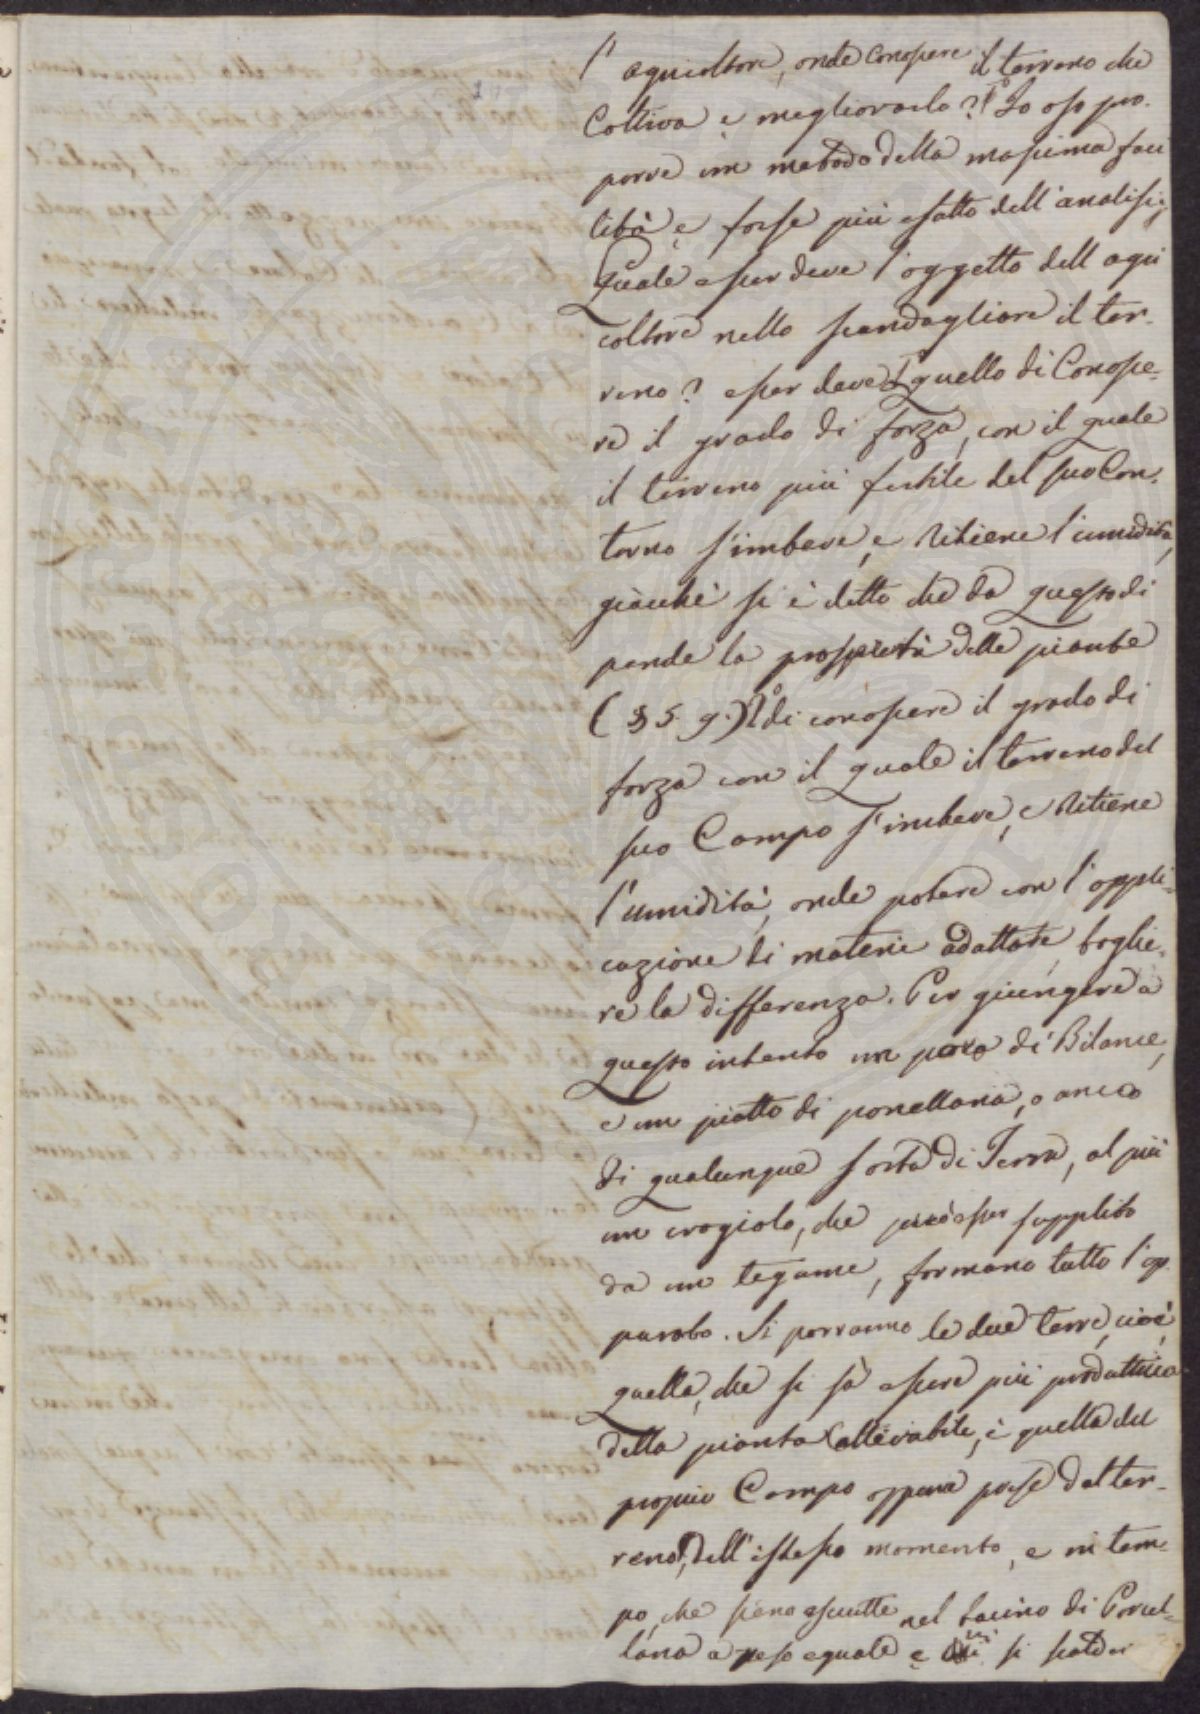 l'agricoltore, onde conoscere il terreno che
Coltiva e megliorarlo? Io oso pro-
porre un metodo della massima faci
lità e forse più esatto dell'analisi;
Quale esser deve l'oggetto dell agri
coltore nello scandagliare il ter-
reno? esser deve quello di Conosce-
re il grado di forza, con il quale
il terreno più fertile del suo Con-
torno s'imbeve, e ritiene l'umidità,
giacchè si è detto che da questo di
pende la prosperità delle piante
(§ 5. 9.) di conoscere il grado di
forza con il quale il terreno del
suo Campo s'imbeve, e ritiene
l'umidità, onde potere con l'appli-
cazione di materie adattate toglie-
re la differenza. Per giungere a
questo intento un paro di Bilance,
e un piatto di porcellana, o anco
di qualunque sorta di Terra, al più
un crogiolo, che può esser supplito
da un tegame, formano tutto l'ap-
parato. Si porranno le due terre, cioè,
quella, che si sà essere più produttrice
della pianta allevabile, e quella del
proprio Campo appena prese dal ter-
reno, dell'istesso momento, e in tem-
po, che siano asciutte nel bacino di Porcel-
lana a peso eguale e si scalderà